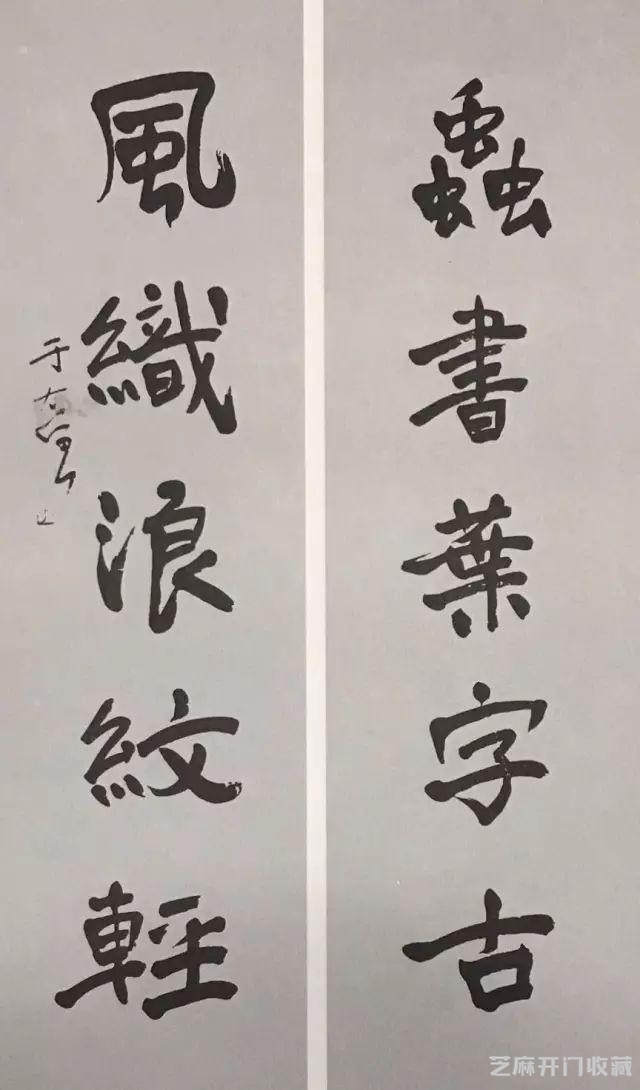 蟲書葉字古
風織浪紋輕
于右任
芝麻开门收藏